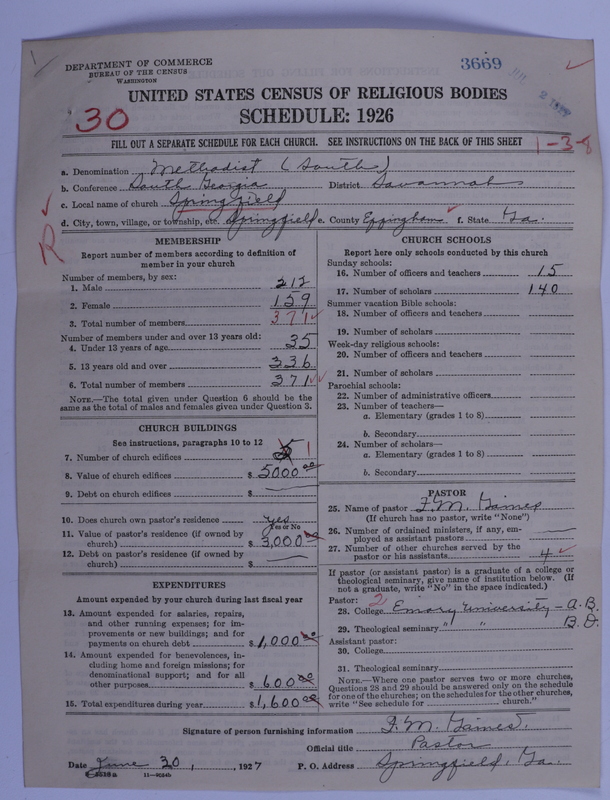 DEPARTMENT OF COMMERCE
BUREAU OF THE CENSUS
WASHINGTON
3669
UNITED STATES CENSUS OF RELIGIOUS BODIES
30
SCHEDULE: 1926
FILL OUT A SEPARATE SCHEDULE FOR EACH CHURCH. SEE INSTRUCTIONS ON THE BACK OF THIS SHEET
1-3-8
a. Denomination Methodist (South)
b. Conference South Georgia District Savannah
c. Local name of church Springfield
d. City, town, village, or township, etc. Springfield e. County Effingham f. State Ga.
R
MEMBERSHIP
Report number of members according to definition of
member in your church
Number of members, by sex:
1. Male 212
2. Female 159
3. Total number of members 371
Number of members under and over 13 years old:
4. Under 13 years of age 35
5. 13 years old and over 336
6. Total number of members 371
NOTE.—The total given under Question 6 should be the
same as the total of males and females given under Question 3.
CHURCH BUILDINGS
See instructions, paragraphs 10 to 12
7. Number of church edifices 5 1
8. Value of church edifices $ 5000 00
9. Debt on church edifices $
10. Does church own pastor's residence yes
Yes or No
11. Value of pastor's residence (if owned by
church) $ 3,000 00
12. Debt on pastor's residence (if owned by
church) $
EXPENDITURES
Amount expended by your church during last fiscal year
13. Amount expended for salaries, repairs,
and other running expenses; for im-
provements or new buildings; and for
payments on church debt $ 1,000 00
14. Amount expended for benevolences, in-
cluding home and foreign missions; for
denominational support; and for all
other purposes $ 600 00
15. Total expenditures during year $ 1,600 00
CHURCH SCHOOLS
Report here only schools conducted by this church
Sunday schools:
16. Number of officers and teachers 15
17. Number of scholars 140
Summer vacation Bible schools:
18. Number of officers and teachers
19. Number of scholars
Week-day religious schools:
20. Number of officers and teachers
21. Number of scholars
Parochial schools:
22. Number of administrative officers
23. Number of teachers—
a. Elementary (grades 1 to 8)
b. Secondary
24. Number of scholars—
a. Elementary (grades 1 to 8)
b. Secondary
PASTOR
25. Name of pastor F. M. Gaines
(If church has no pastor, write "None")
26. Number of ordained ministers, if any, em-
ployed as assistant pastors
27. Number of other churches served by the
pastor or his assistants 4
If pastor (or assistant pastor) is a graduate of a college or
theological seminary, give name of institution below. (If
not a graduate, write "No" in the space indicated.)
Pastor: 2
28. College Emory University — A.B.
29. Theological seminary " " B.D.
Assistant pastor:
30. College
31. Theological seminary
NOTE.—Where one pastor serves two or more churches,
Questions 28 and 29 should be answered only on the schedule
for one of the churches; on the schedules for the other churches,
write "See schedule for church."
Signature of person furnishing information F. M. Gaines.
Official title Pastor
Date June 30, 1927 P. O. Address Springfield, Ga.
11—9024b